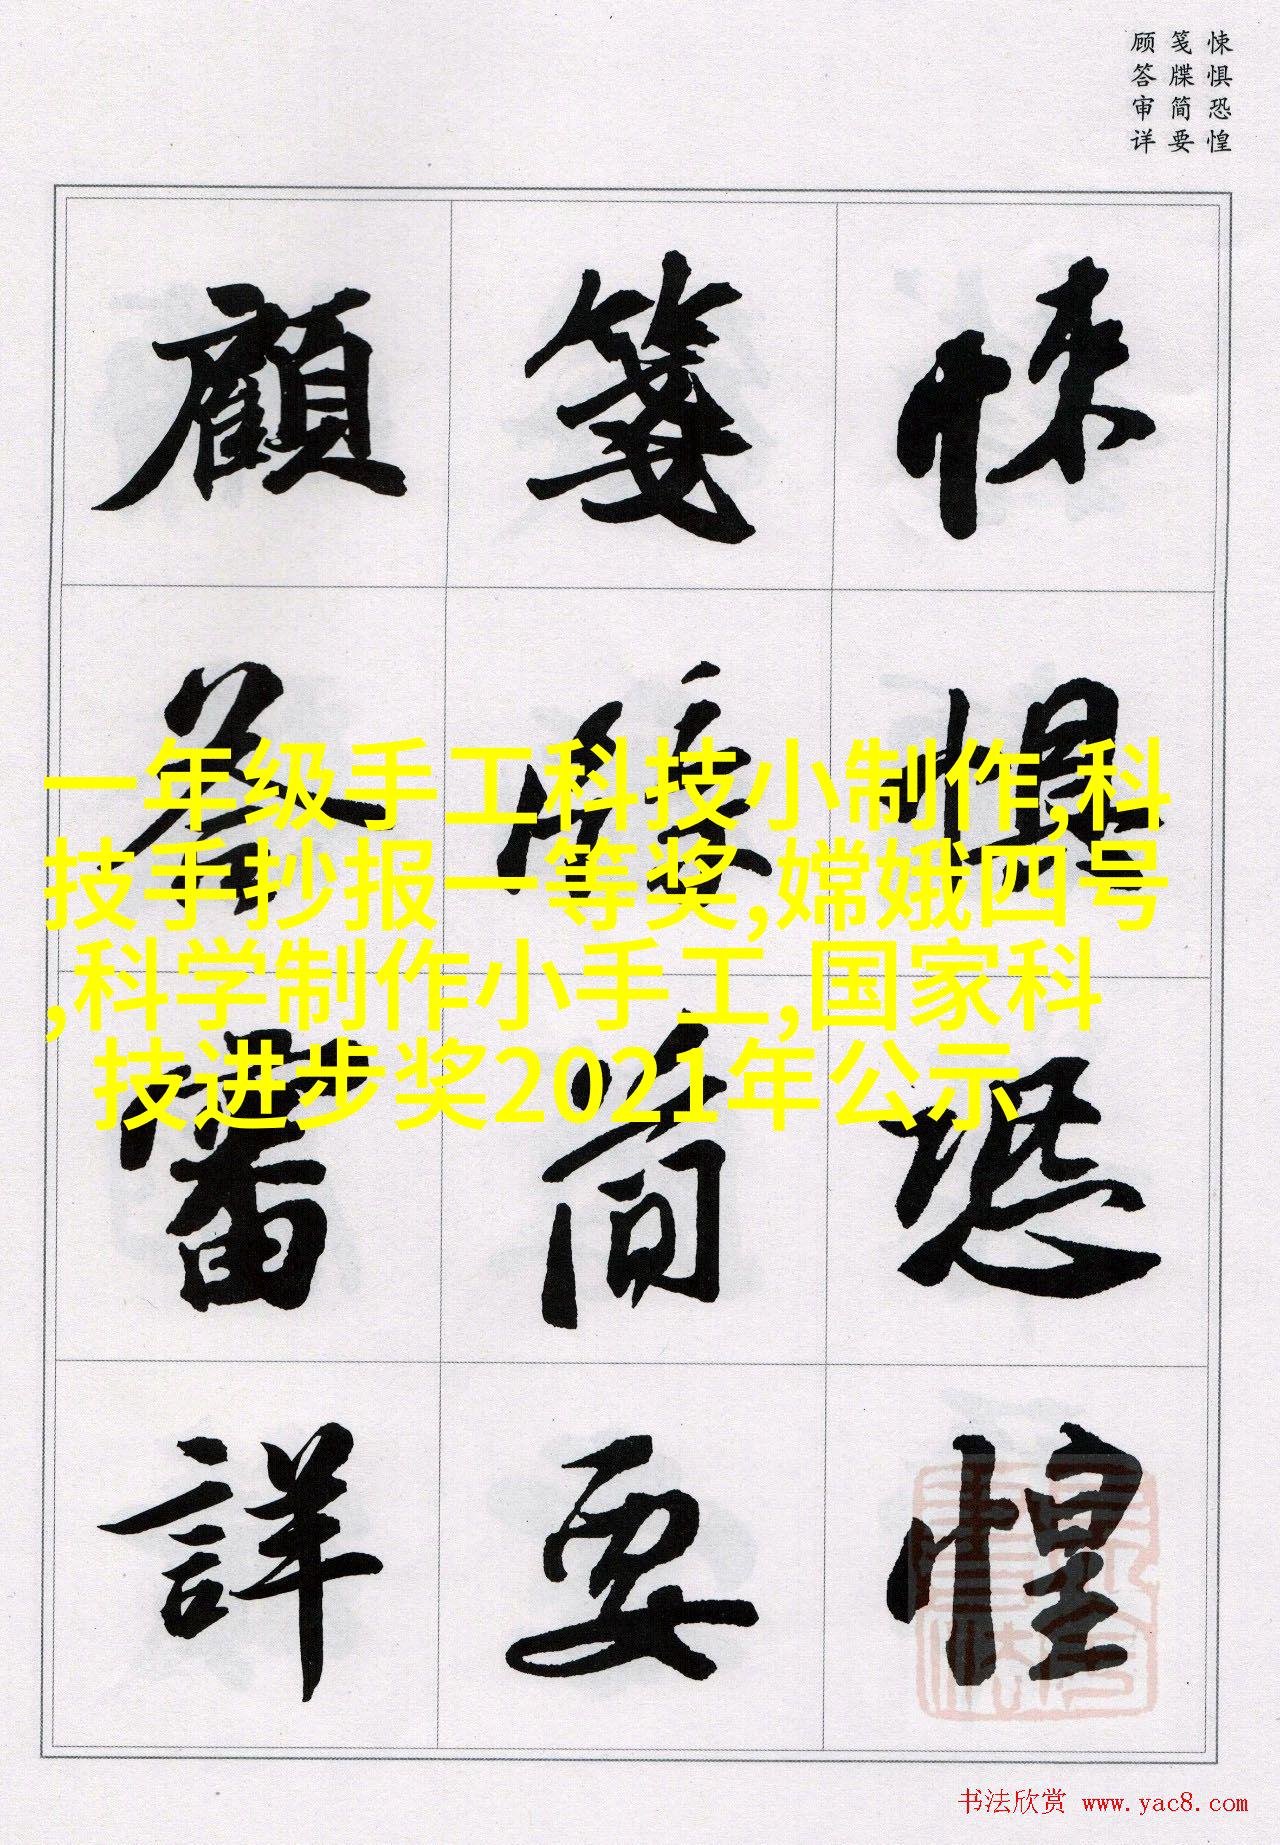 悚惧恐惶
笺牒简要
顾答审详
悚懼恐惶
箋牒簡要
顧答審詳
一年级手工科技小制作,科
技手抄报一等奖,嫦娥四号
,科学制作小手工,国家科
技进步奖2021年公示
书法欣赏 www.yac8.com